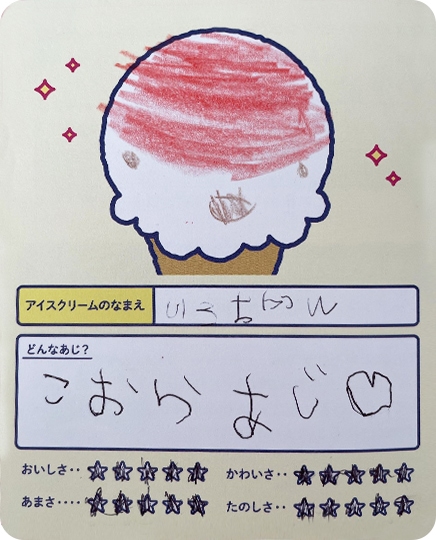 アイスクリームのなまえ
どんなあじ?
こおらあじ♡
おいしさ‥ ☆☆☆☆☆ かわいさ‥ ☆☆☆☆☆
あまさ‥‥ ☆☆☆☆☆ たのしさ‥ ☆☆☆☆☆